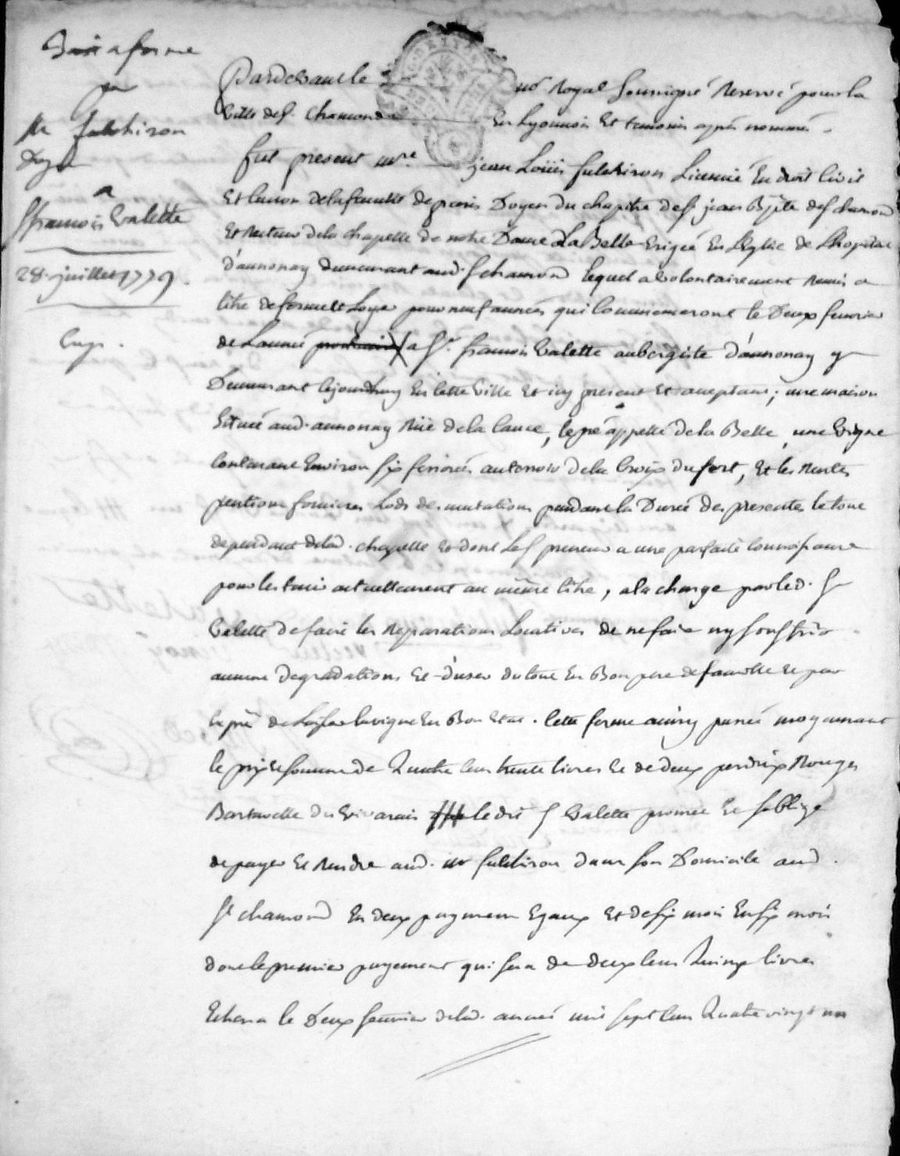 Bail a ferme
par
Mr fulchiron
Doyen
a
Sr françois Valette
28. juillet 1779.
Pardevant le nore Royal soussigné Reservé pour la
Ville de St chamond en Lyonnois Et temoins après nommés.
fut present mre jean Loüis fulchiron Licencié En droit Civil
Et Canon de la faculté de paris Doyen du chapitre de St jean Bpte de St chamond
Et Recteur de la chapelle de notre Dame La Belle Erigée En L'Eglise de L'hopital
d'annonay demeurant aud. St chamond lequel a volontairement Remis a
titre de ferme et Loyer pour neuf années qui Commenceront le Deux fevrier
de L'année a Sr. françois Valette aubergiste d'annonay y
Demeurant En cette ville Et icy present Et acceptant; une maison
Située aud. annonay Rüe de la lance, le pré appellé de la Belle, une Vigne
Contenant Environ six au terroir de la Croix du fort, Et les Rentes
pentions foncieres Lods de mutations pendant la Durée des presentes le tout
dependant de lad. chapelle Et dont Le Sr preneur a une parfaite Connoissance
pour les tenir actuellement au même titre, a la charge par led. Sr
Valette de faire les Reparations Locatives de ne faire ny souffrir
aucune Degradations Et d'user du tout En Bon pere de famille Et par
de Laisser la vigne En Bon Etat. Cette ferme ainsy passée moyennant
le prix Et somme de Quatre Cens trente livres Et de deux perdrix Rouges
Bartavelle du Vivarais ledit Sr Valette promet Et s'oblige
de payer Et Rendre aud. mre fulchiron dans son Domicile aud.
St chamond En deux payemens Egaux Et de six mois En six mois
dont le premier payement qui sera de deux Cens Quinze livres
Echera le Deux fevrier de lad. année mil sept Cens Quatre vingt un